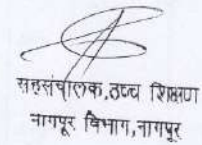 सहसंचालक,उच्च शिक्षण
नागपूर विभाग,नागपूर